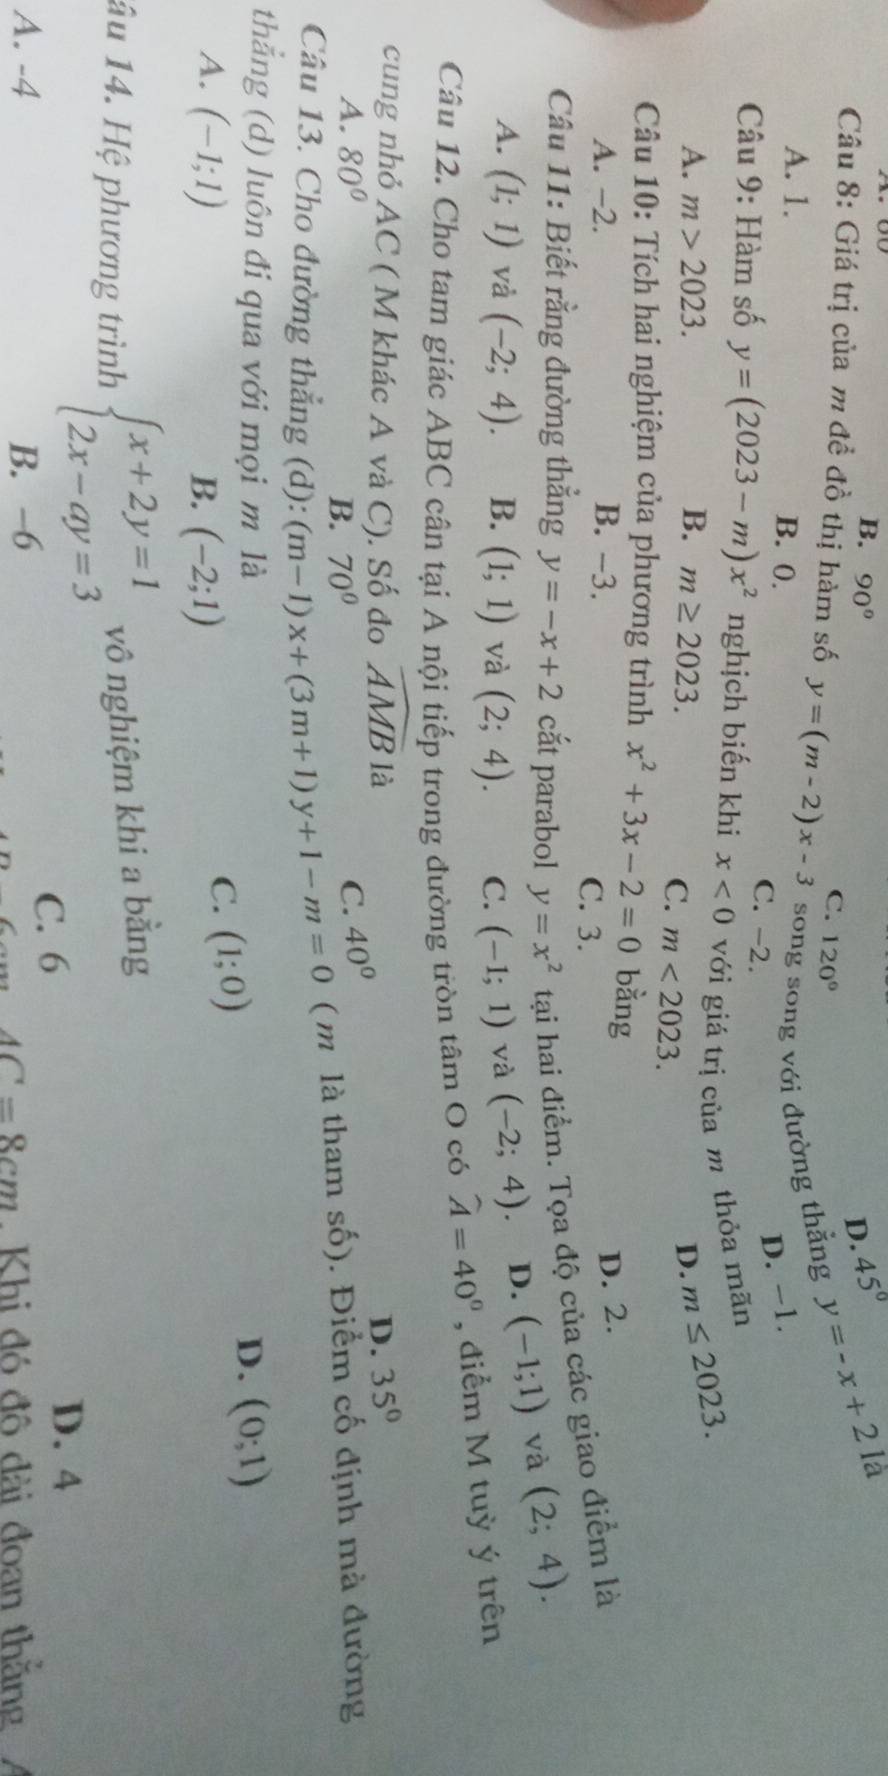 B. 90⁰ C. 120⁰ D. 45⁰
Câu 8: Giá trị của m để đồ thị hàm số y = (m - 2)x - 3 song song với đường thẳng y = -x + 2 là
A. 1. B. 0. C. -2. D. -1.
Câu 9: Hàm số y = (2023 - m)x² nghịch biến khi x < 0 với giá trị của m thỏa mãn
A. m > 2023. B. m ≥ 2023. C. m < 2023. D. m ≤ 2023.
Câu 10: Tích hai nghiệm của phương trình x² + 3x - 2 = 0 bằng
A. -2. B. -3. C. 3. D. 2.
Câu 11: Biết rằng đường thẳng y = -x + 2 cắt parabol y = x² tại hai điểm. Tọa độ của các giao điểm là
A. (1; 1) và (-2; 4). B. (1; 1) và (2; 4). C. (-1; 1) và (-2; 4). D. (-1;1) và (2; 4).
Câu 12. Cho tam giác ABC cân tại A nội tiếp trong đường tròn tâm O có Â = 40⁰, điểm M tuỳ ý trên
cung nhỏ AC ( M khác A và C). Số đo \widehat{AMB} là
A. 80⁰ B. 70⁰ C. 40⁰ D. 35⁰
Câu 13. Cho đường thẳng (d): (m-1)x+(3m+1)y+1-m=0 ( m là tham số). Điểm cố định mà đường
thẳng (d) luôn đi qua với mọi m là
A. (-1;1) B. (-2;1) C. (1;0) D. (0;1)
âu 14. Hệ phương trình { x+2y=1 ; 2x-ay=3 vô nghiệm khi a bằng
A. -4 B. -6 C. 6 D. 4
AC = 8cm. Khi đó độ dài đoạn thẳng